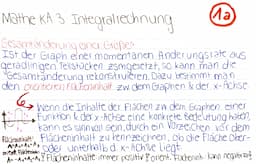 Mathe KA 3 Integralrechnung
1a
Gesamtänderung einer Größe
Ist der Graph einer momentanen Änderungsrate aus
geradlinigen Teilstücken zsmgesetzt, so kann man die
Gesamtänderung rekonstruieren. Dazu bestimmt man
den orientierten Flächeninhalt zw dem Graphen & der x-Achse
Wenn die Inhalte der Flächen zw dem Graphen einer
Funktion & der x-Achse eine konkrete Bedeutung haben,
kann es sinnvoll sein, durch ein Vorzeichen vor dem
Flächeninhalt zu kennzeichnen, ob die Fläche ober-
oder unterhalb d. x-Achse liegt.
Flächeninhalt
Flächeninhalte immer positiv! Orient. Flächeninh. kann negativ sein